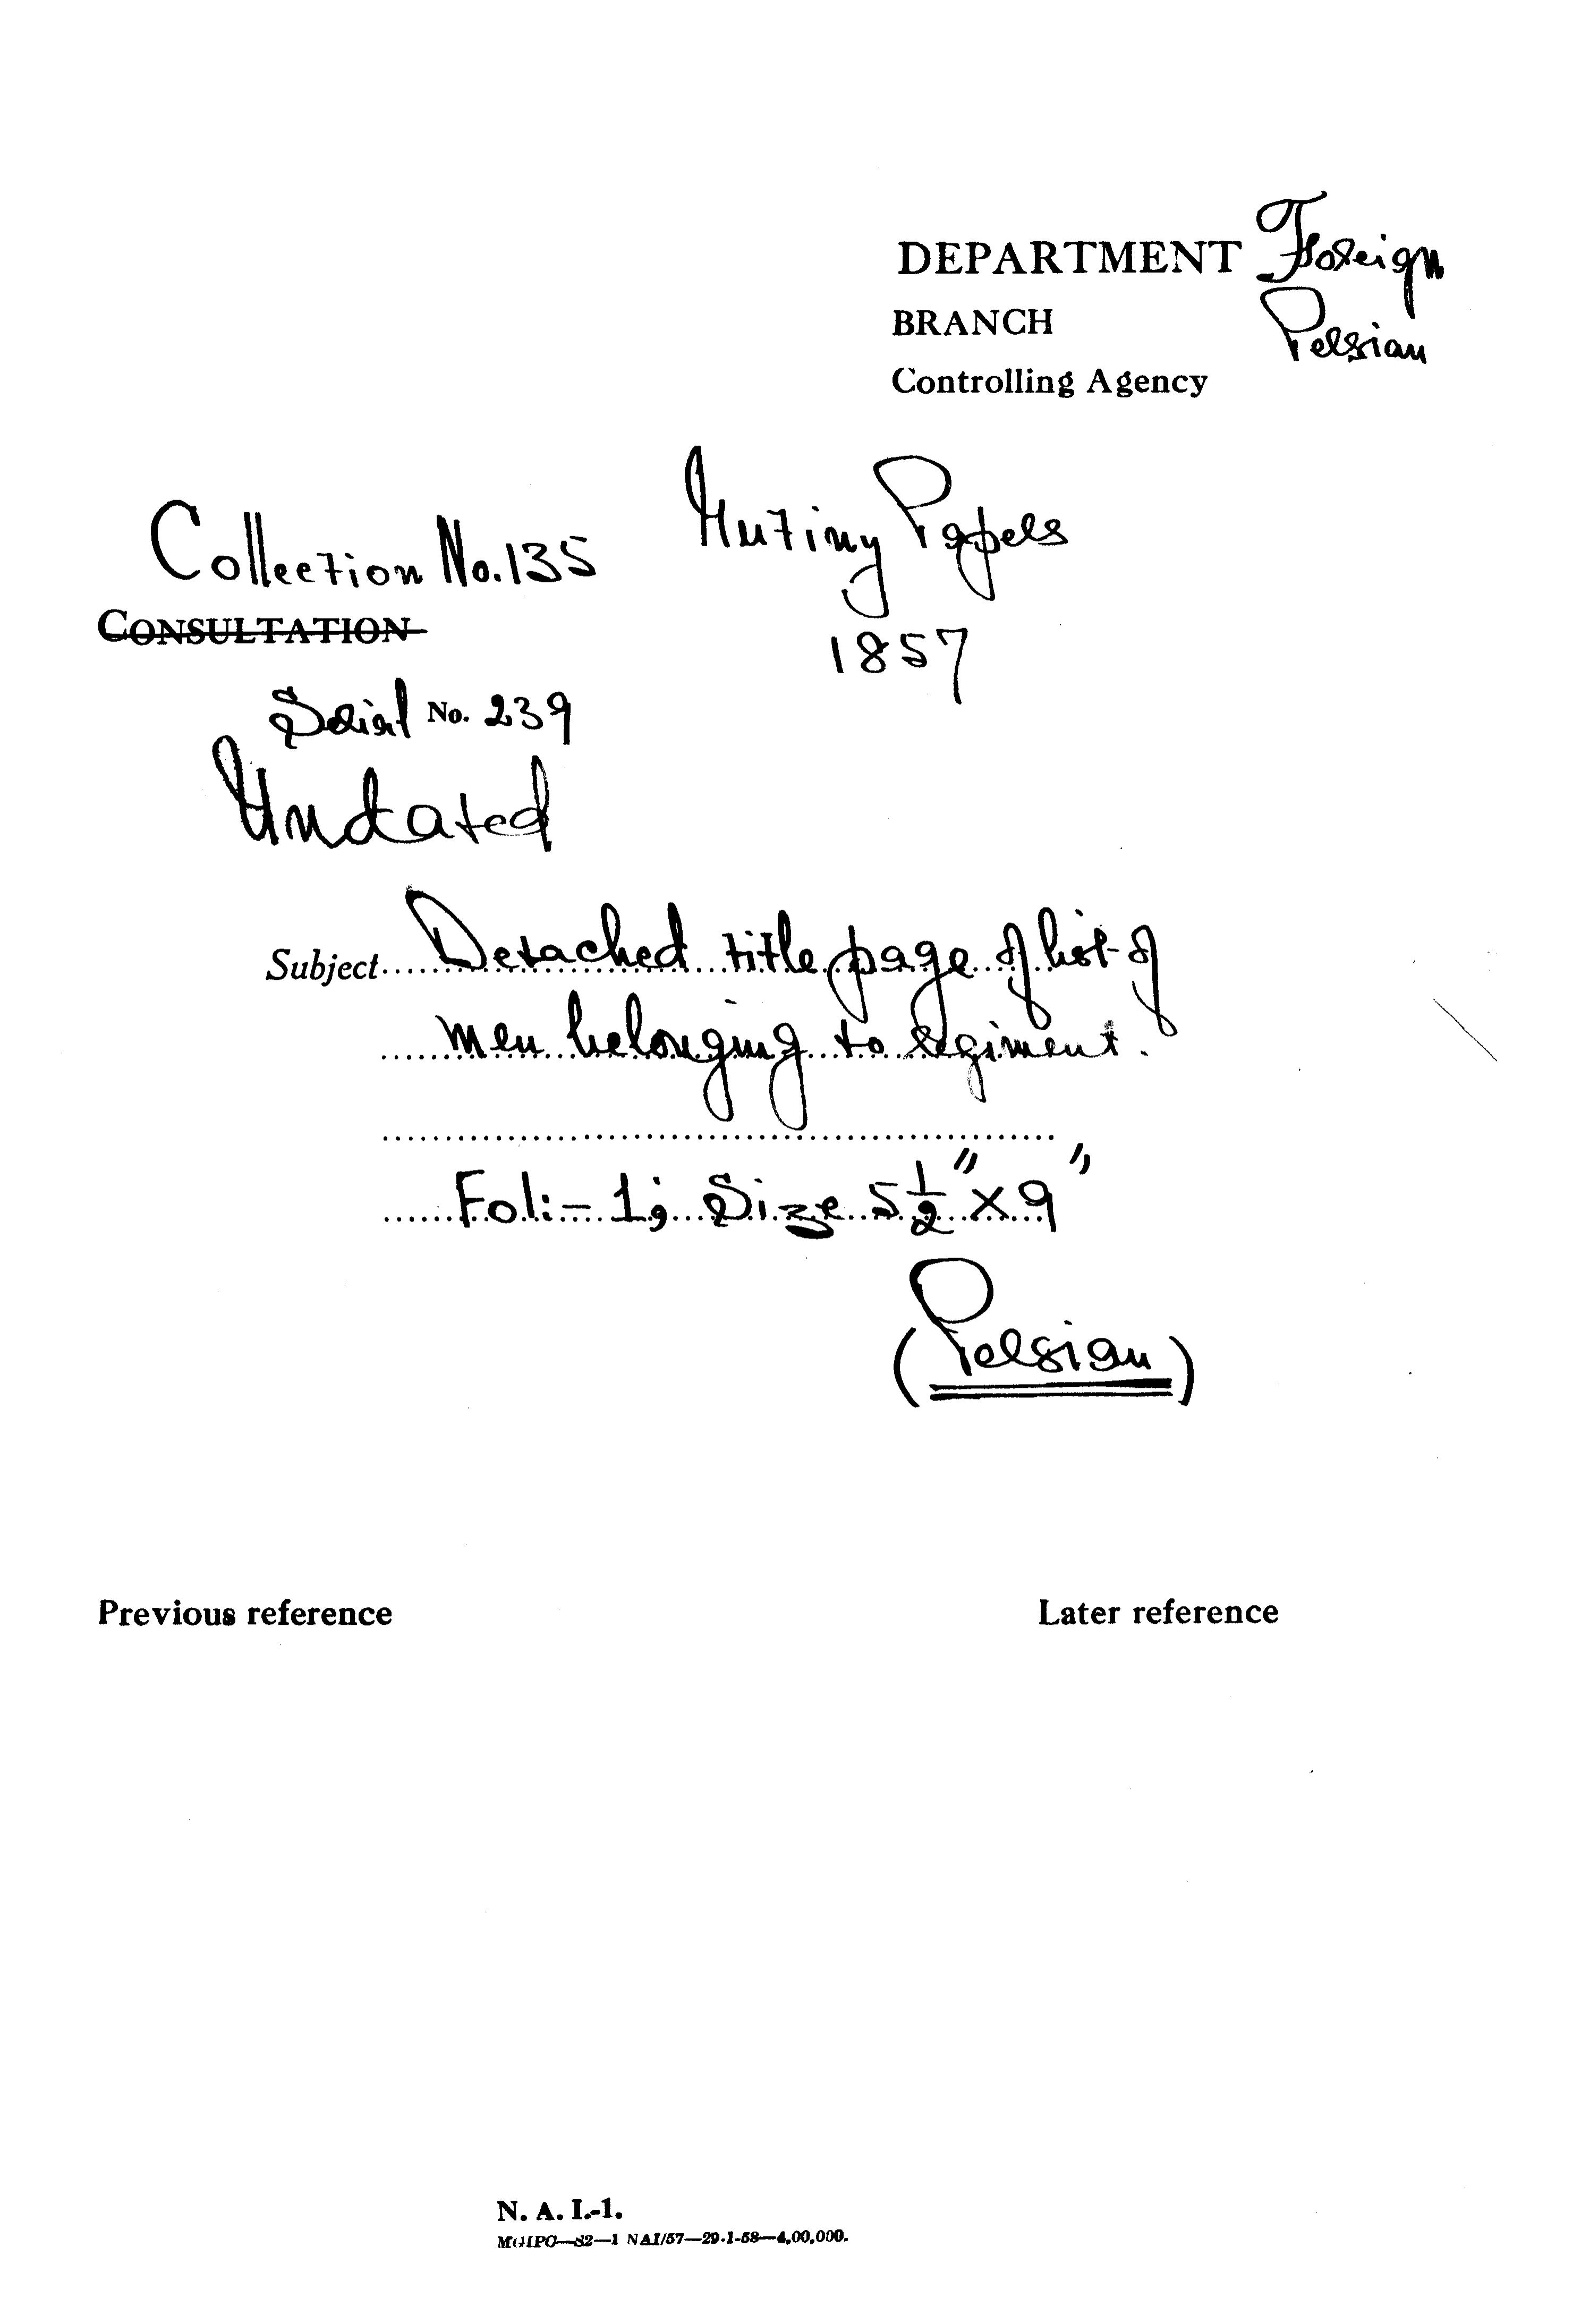 DEPARTMENT Foreign
BRANCH Persian
Controlling Agency
Mutiny Papers
1857
Collection No. 135
CONSULTATION
Serial No. 239
Undated
Subject Detached title page of list of
men belonging to regiment.
Fol:- 1; Size 5 1/2" x 9"
(Persian)
Previous reference
Later reference
N. A. I.-1.
MGIPC—S2—1 NAI/57—29-1-58—4,00,000.